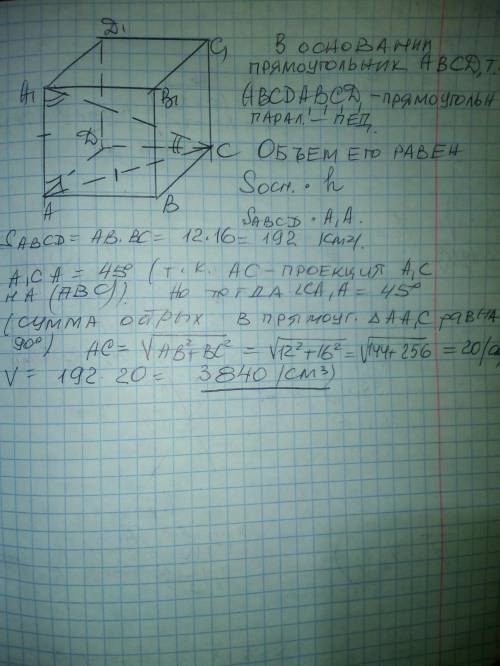 Д₁ С₁
В ОСНОВАНИИ
ПРЯМОУГОЛЬНИК ABCD, Т.
А₁ В₁
ABCDA₁B₁C₁D₁ - ПРЯМОУГОЛЬН
ПАРАЛ. - ПЕД.
Д С ОБЪЕМ ЕГО РАВЕН
Sосн. · h
А В
SABCD · A₁A.
SABCD = AB · BC = 12 · 16 = 192
A₁CA = 45° (Т.К. АС - ПРОЕКЦИЯ A₁C
НА (ABC)). НО ТОГДА ∠CA₁A = 45°
(СУММА ОСТРЫХ В ПРЯМОУГ. ΔAA₁C РАВНА
90°) AC = √AB²+BC² = √12²+16² = √144+256 = 20 (см
V = 192 · 20 = 3840 (см³)